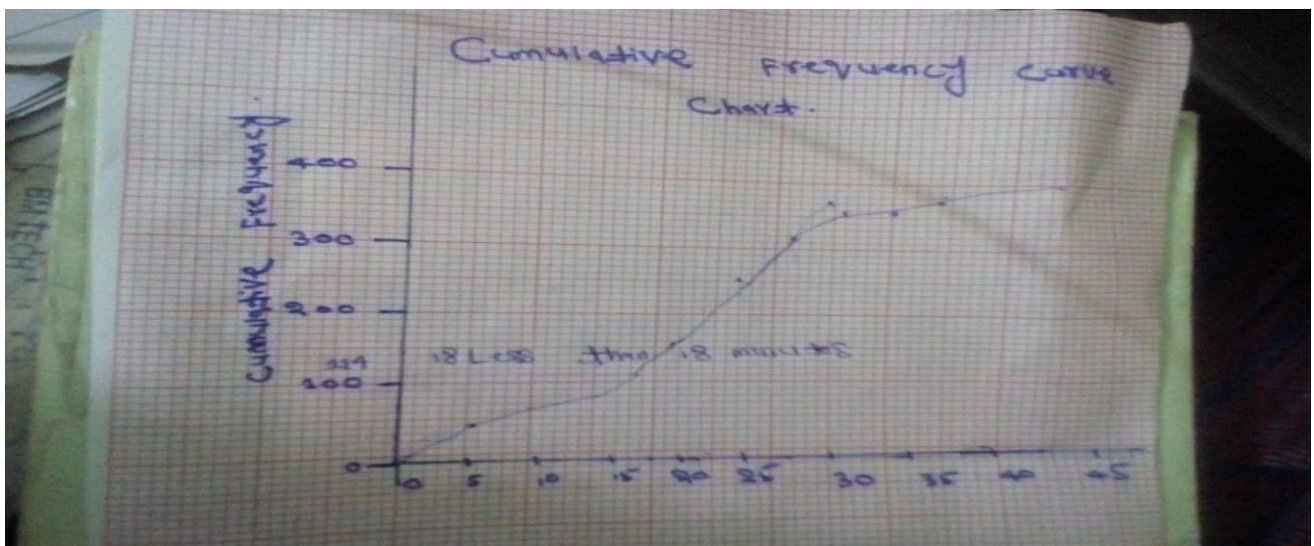 Cumulative Frequency Curve
Chart.
Cumulative Frequency.
400
300
200
114 18 Less than 18 minutes
100
0
0 5 10 15 20 25 30 35 40 45